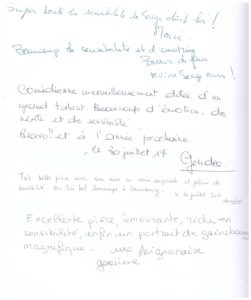 Super toute la sensibilité de Serge était là !
Merci.
Beaucoup de sensibilité et d'émotion
Bravo de faire
revivre Serge ainsi !
Comédienne merveilleusement dotée d'un
grand talent. Beaucoup d'émotion, de
vérité et de sensibilité
Bravo!! et à l'année prochaine
le 30 juillet 17.
Très belle pièce avec une mise en scène originale et pleine de
sensibilité. Un très bel hommage à Gainsbourg
le 30 juillet 2017
Excellente pièce, émouvante, riche en
sensibilité, enfin un portrait de gainsbourg
magnifique. une Avignonaise
geneviève